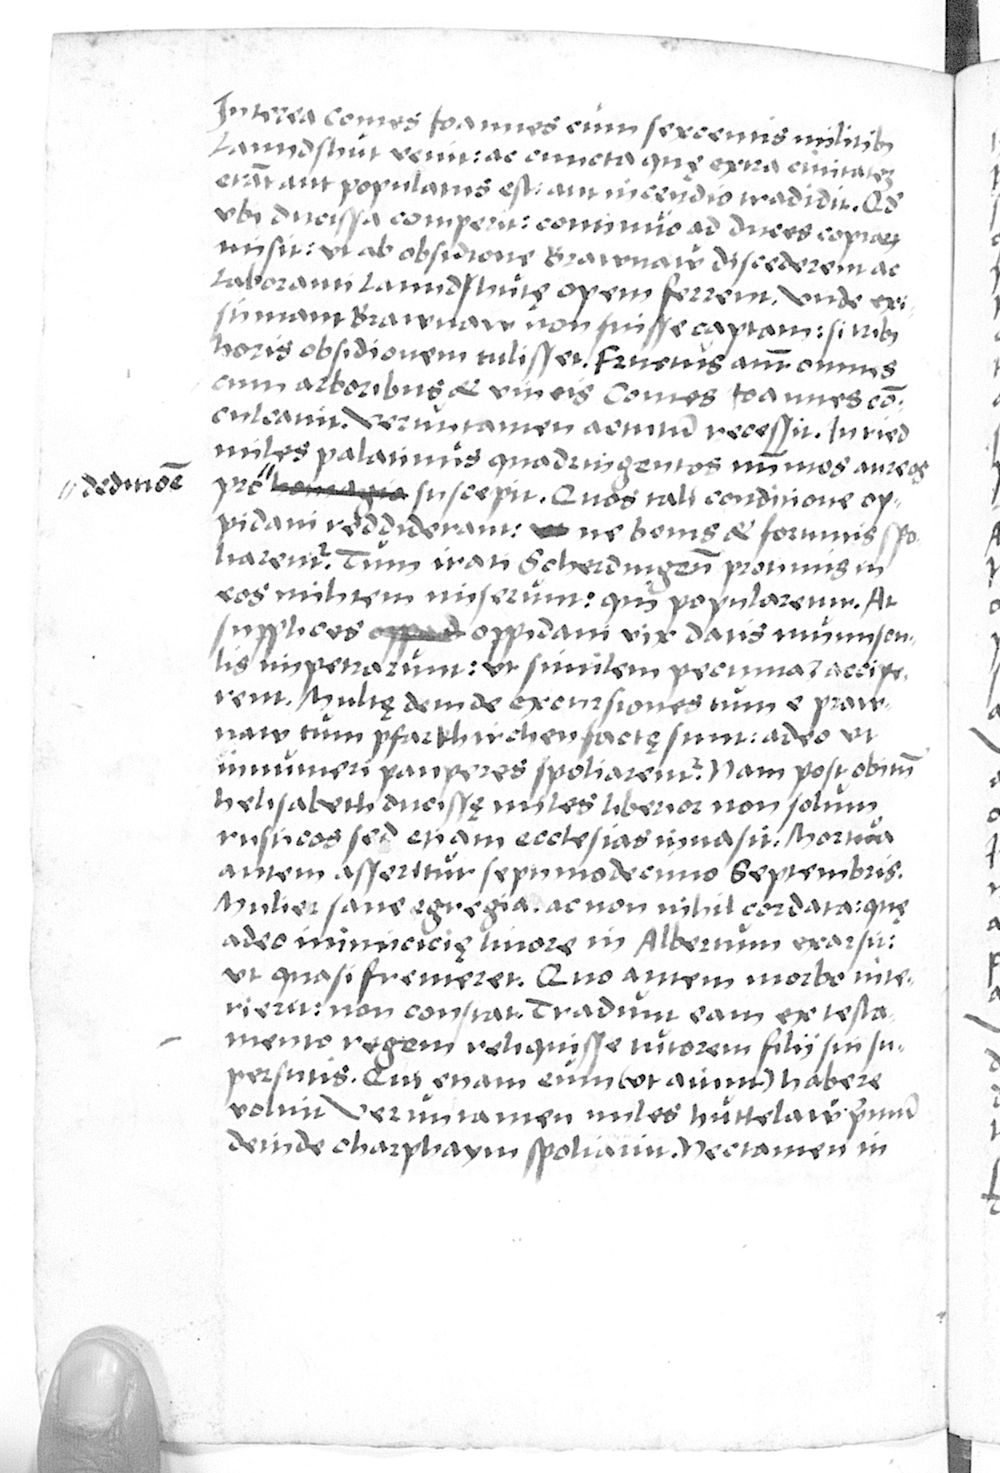 Interea comes Ioannes cum sexcentis militib
Lanndshut venit: ac cuncta quę extra ciuitatez
erāt aut populatus est: aut incendio tradidit. Qd
vbi ducissa comperit: continuo ad duces copiaꝝ
misit: vt ab obsidione Brawnaw discederent ac
laboranti Lanndshutę opem ferrent. Vnde exi-
stimant Brawnaw non fuisse captam: si trib
horis obsidionem tulisset. Fructus aut̄ omnes
cum arboribus & vineis Comes Ioannes cō-
culcauit. Veruntamen actutū recessit. In ried
miles palatinus quadringentos nūmos aureos
pro " homagio suscepit. Quos tali conditione op-
" deditiōe
pidani reddiderant: ne bonis & fortunis spo-
liarent᷑. Tum irati Scherdingen̄ protinus in
eos militem miserunt: qui popularetur. At
supplices oppidani vix datis munuscu-
lis impetrarunt: vt similem pecunia accipe-
rent. Multę deinde excursiones tum e praw-
naw tum pfarkhirchen factę sunt: adeo vt
innumeri pauperes spoliarent᷑. Nam post obitū
helisabeth ducissę miles liberior non solum
rusticos sed etiam ecclesias inuasit. Mortua
autem asseritur septimodecimo Septembris.
Mulier sane egregia. ac non nihil cordata: quę
adeo inimicicię liuore in Albertum exarsit:
vt quasi fremeret. Quo autem morbo inte-
rierit: non constat. Tradunt eam ex testa-
mento regem reliquisse tutorem filij sui su-
perstitis. Qui etiam eum (vt aiunt) habere
voluit Veruntamen miles huttelaw p̄mū
deinde charphaym spoliauit. Nec tamen in